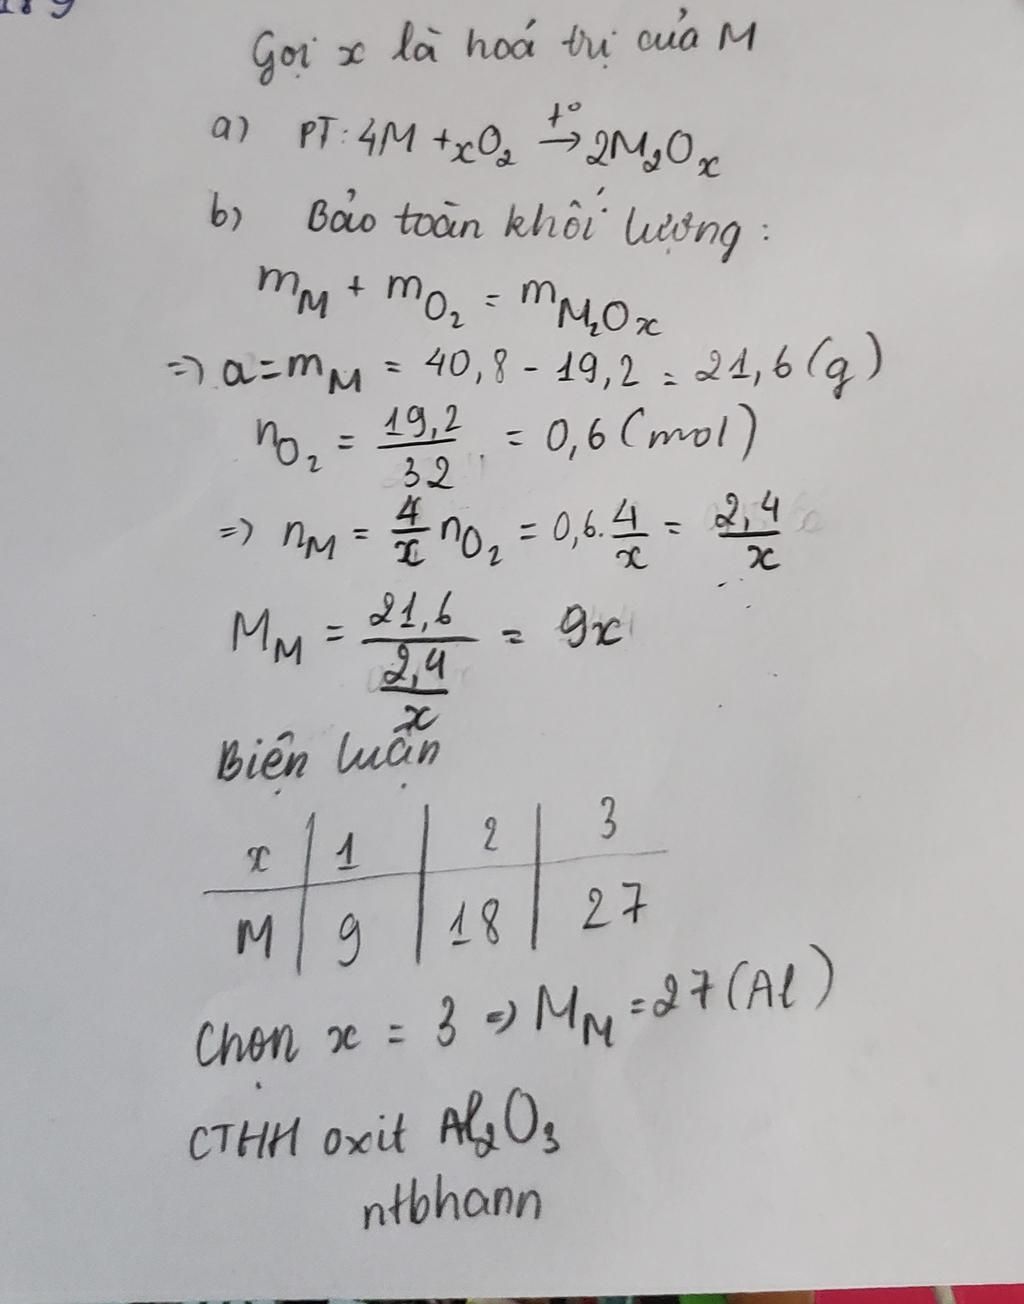 Gọi x là hoá trị của M
a) PT: 4M + xO₂ →t° 2M₂Oₓ
b) Bảo toàn khối lượng:
m_M + m_O₂ = m_M₂Oₓ
=> a = m_M = 40,8 - 19,2 = 21,6 (g)
n_O₂ = 19,2/32 = 0,6 (mol)
=> n_M = 4/x n_O₂ = 0,6. 4/x = 2,4/x
M_M = 21,6/(2,4/x) = 9x
Biện luận
x | 1 | 2 | 3
M | 9 | 18 | 27
Chọn x = 3 => M_M = 27 (Al)
CTHH oxit Al₂O₃
ntbhann